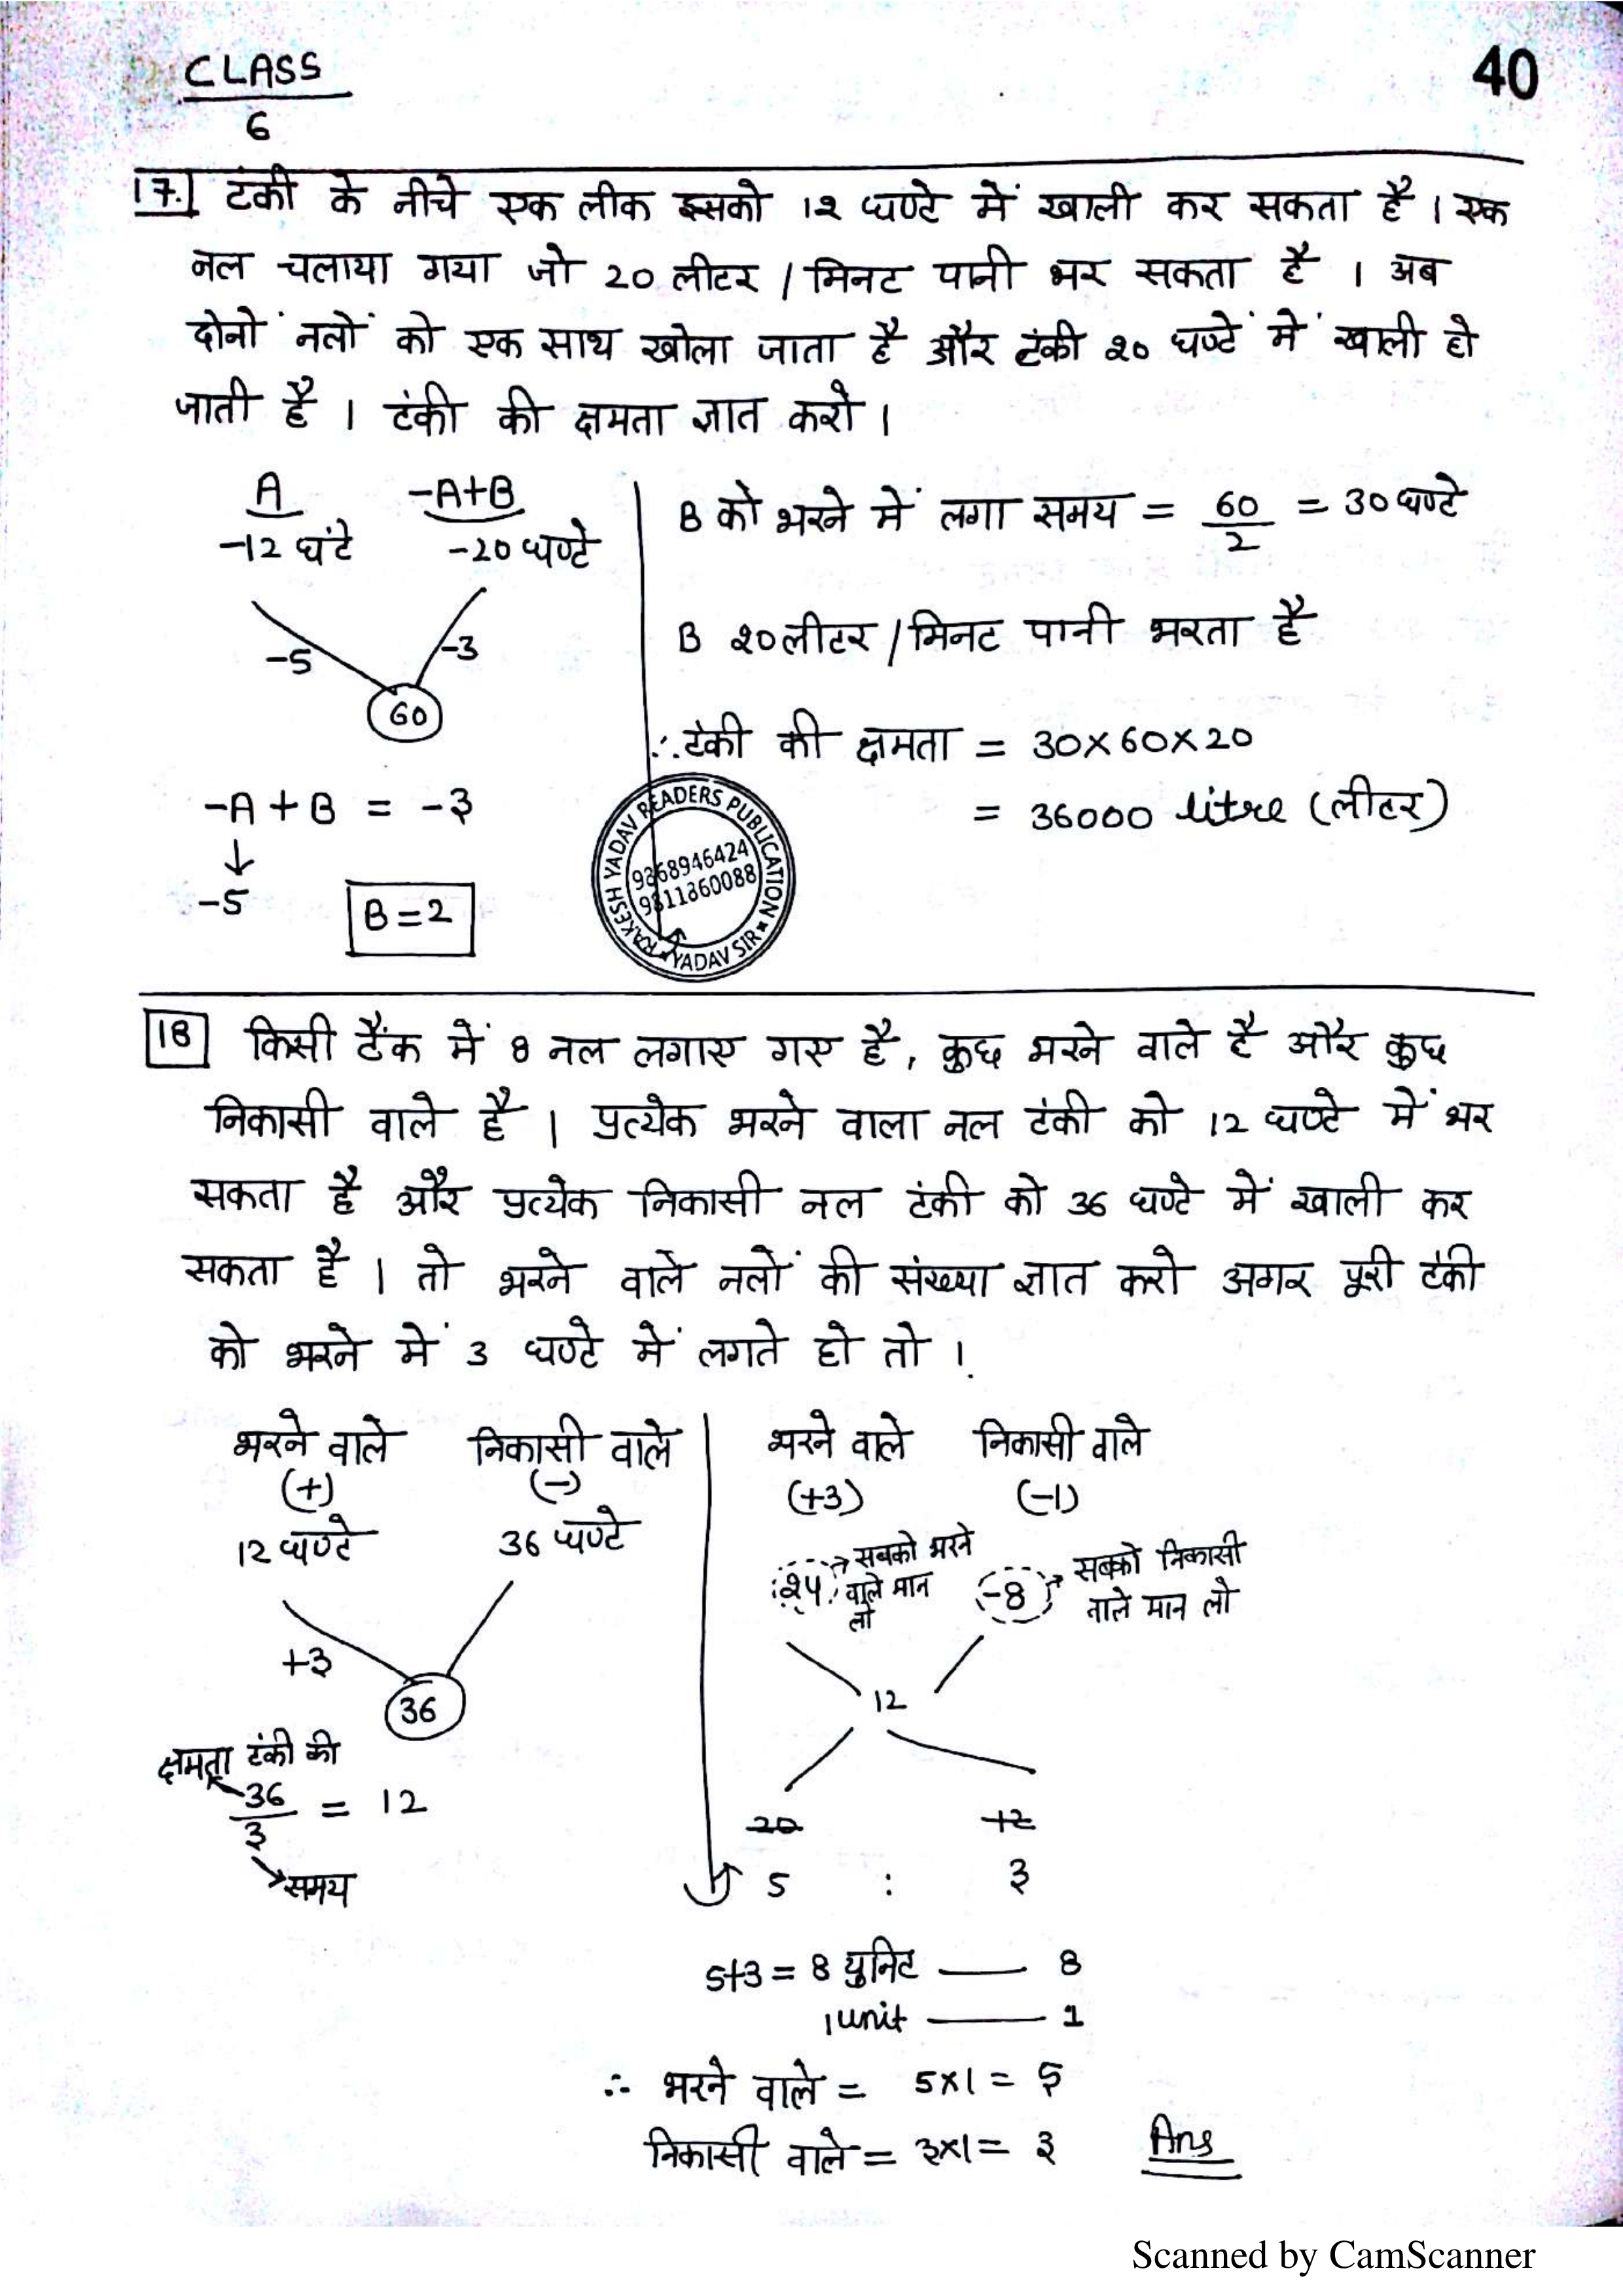 CLASS
6
40
17. टंकी के नीचे एक लीक इसको 12 घण्टे में खाली कर सकता है। एक
नल चलाया गया जो 20 लीटर / मिनट पानी भर सकता है। अब
दोनों नलों को एक साथ खोला जाता है और टंकी 20 घण्टें में खाली हो
जाती है। टंकी की क्षमता ज्ञात करो।
A -A+B
-12 घंटे -20 घण्टे
-5 -3
60
-A + B = -3
↓
-5
B=2
B को भरने में लगा समय = 60/2 = 30 घण्टे
B 20 लीटर / मिनट पानी भरता है
∴ टंकी की क्षमता = 30×60×20
= 36000 litre (लीटर)
RAKESH YADAV READERS PUBLICATION
9868946424
9811860088
YADAV SIR
18 किसी टैंक में 8 नल लगाए गए है, कुछ भरने वाले है और कुछ
निकासी वाले है। प्रत्येक भरने वाला नल टंकी को 12 घण्टे में भर
सकता है और प्रत्येक निकासी नल टंकी को 36 घण्टे में खाली कर
सकता है। तो भरने वाले नलों की संख्या ज्ञात करो अगर पूरी टंकी
को भरने में 3 घण्टे में लगते हो तो।
भरने वाले निकासी वाले
(+) (-)
12 घण्टे 36 घण्टे
+3
36
क्षमता टंकी की
36/3 = 12
समय
भरने वाले निकासी वाले
(+3) (-1)
24 सबको भरने वाले मान लो
-8 सबको निकासी ताले मान लो
12
20 12
5 : 3
5+3 = 8 युनिट — 8
1 unit — 1
∴ भरने वाले = 5×1 = 5
निकासी वाले = 3×1 = 3 Ans
Scanned by CamScanner